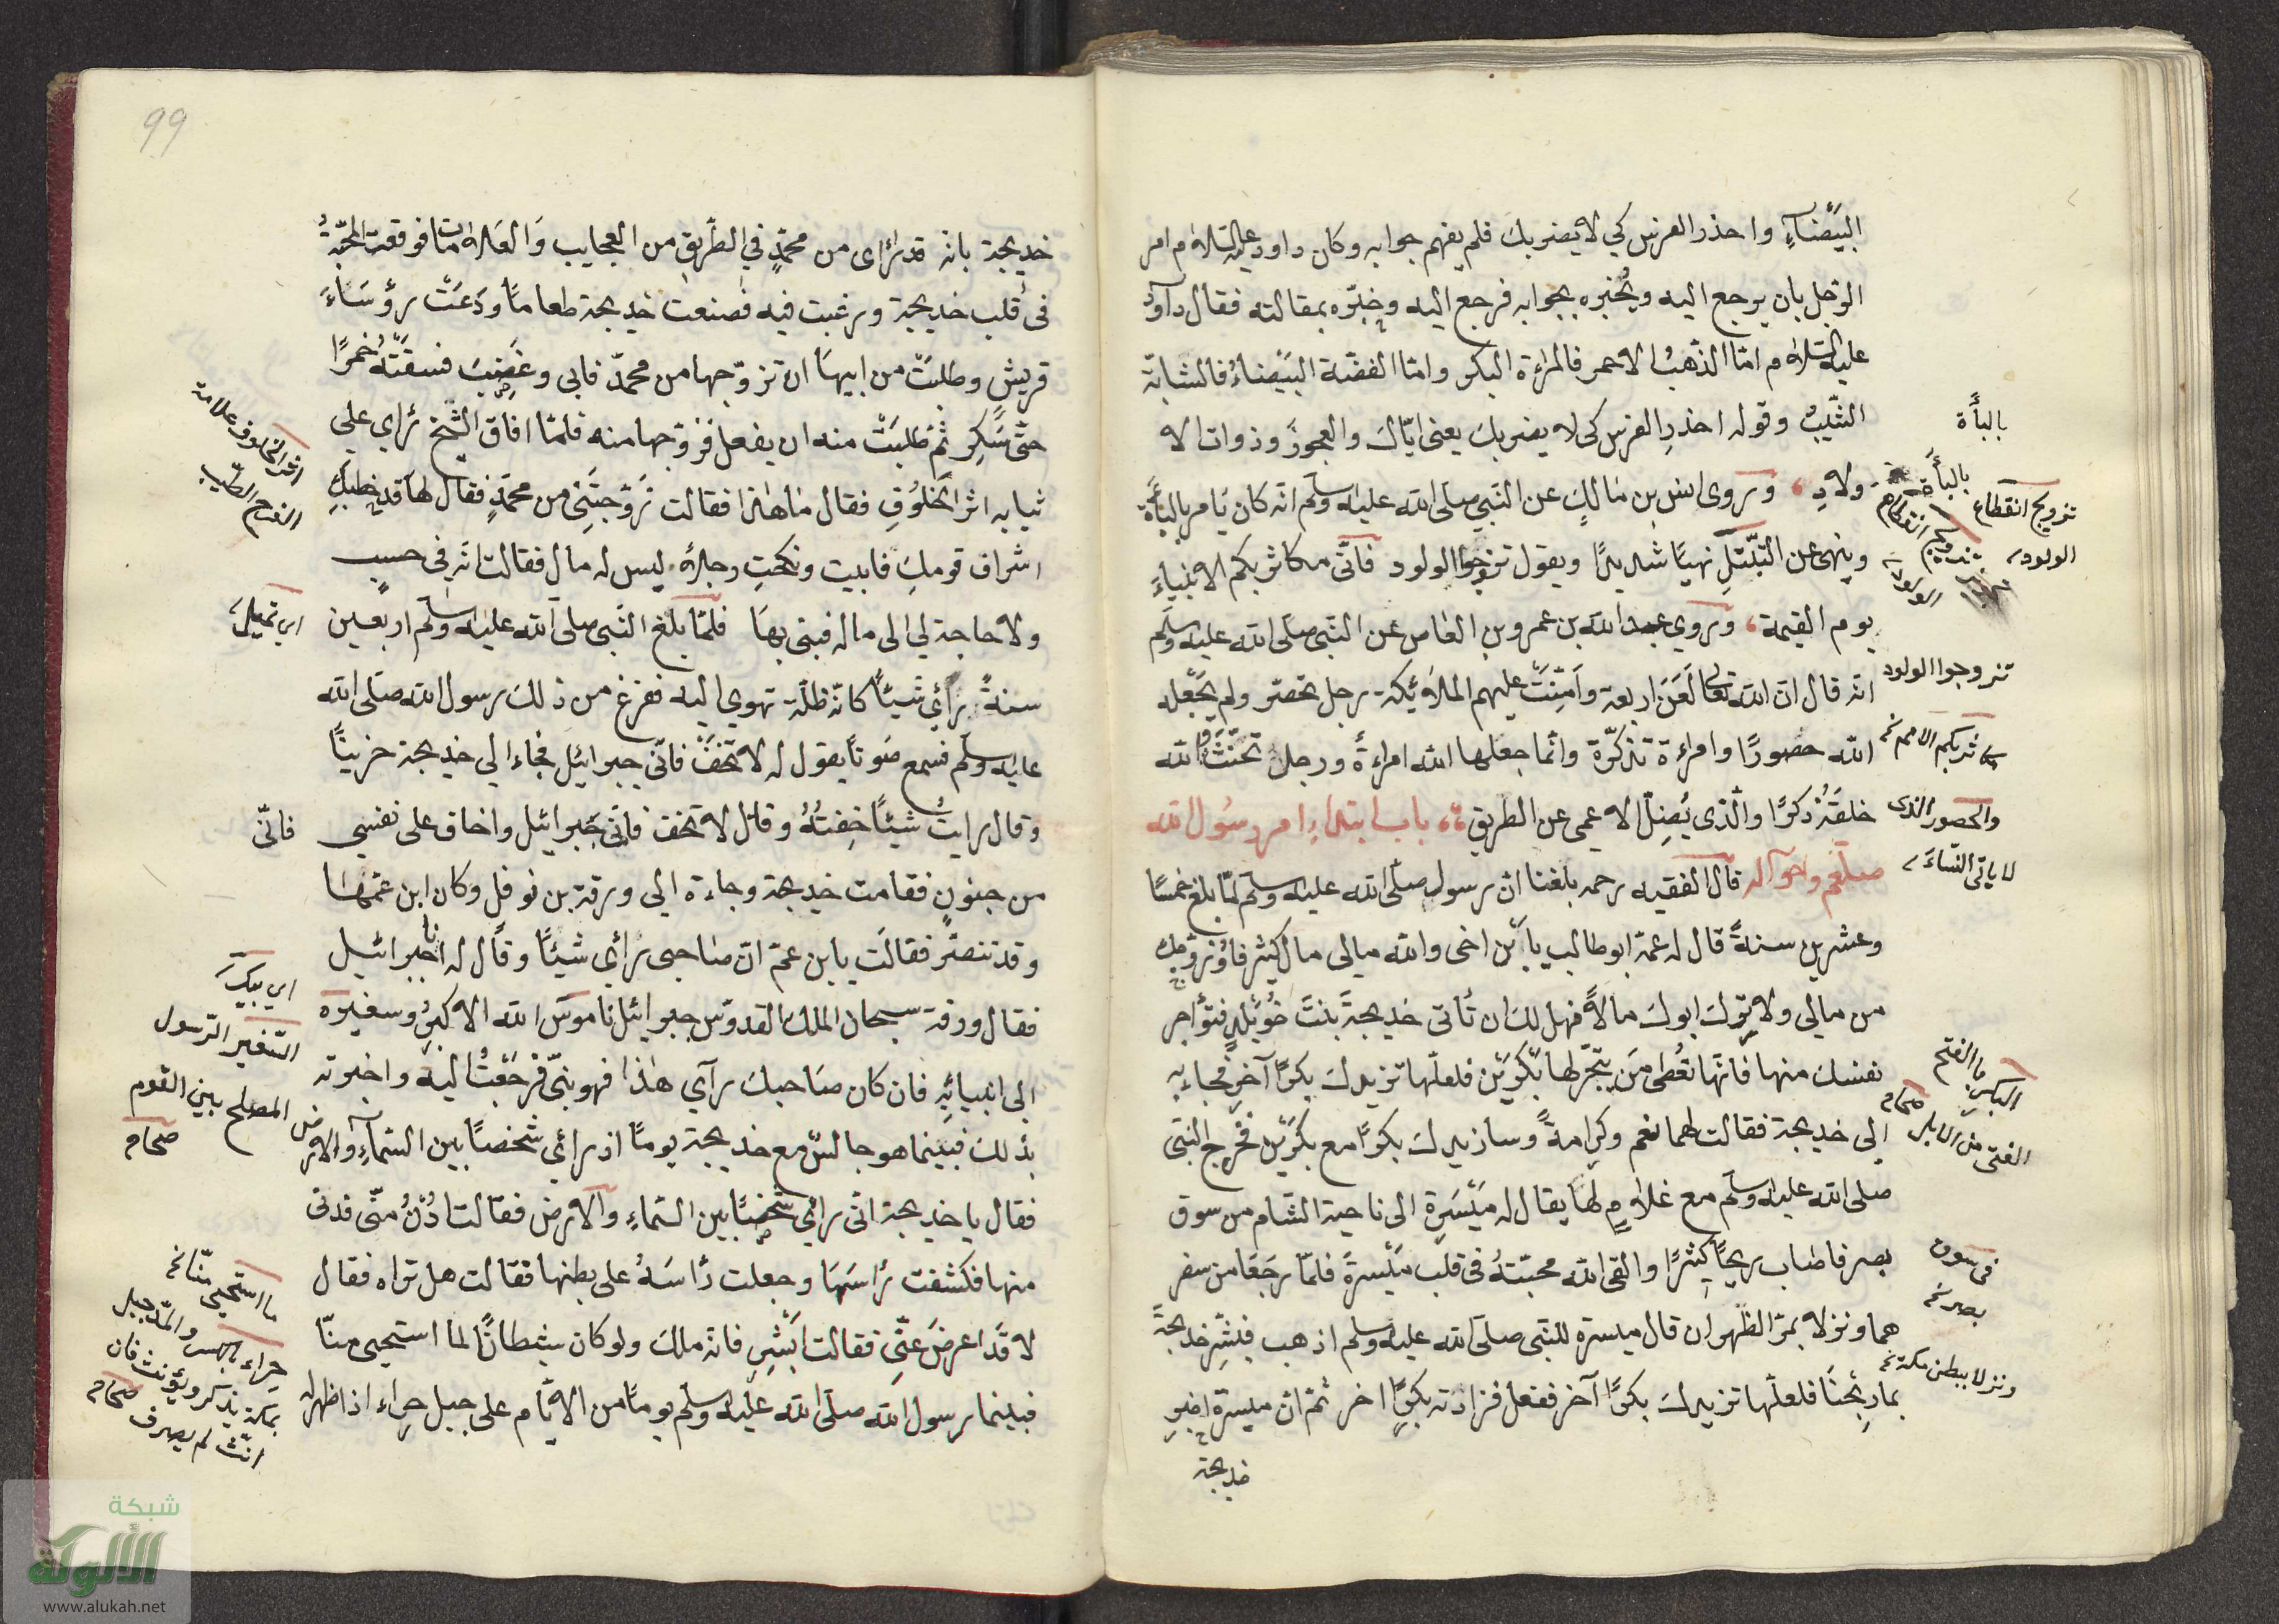 البيضاء واحذر الفرس كي لا يضربك فلم يفهم جوابه وكان داود عليه السلام امر
الرجل بان يرجع اليه ويخبره بجوابه فرجع اليه وخبّره بمقالته فقال داود
عليه السلام امّا الذهب الاحمر فالمراة البكر وامّا الفضّة البيضاء فالشابّة
الثّيب وقوله احذر الفرس كي لا يضربك يعني ايّاك والعجوز وذوات الا
ولاد وروى انس بن مالك عن النّبي صلى الله عليه وسلم انّه كان يامر بالبأة
وينهى عن التبتّل نهيًا شديدًا ويقول تزوجوا الولود فانّى مكاثر بكم الانبياء
يوم القيمة وروي عبد الله بن عمرو بن العاص عن النّبي صلى الله عليه وسلم
انه قال ان الله تعالى لعن اربعة وامّنت عليهم الملائكة رجل تحصّر ولم يجعله
الله حصورًا وامراة تذكّرت وانّما جعلها الله امراةً ورجل تخنّث والله
خلقه ذكرًا والّذى يُضِلّ الاعمى عن الطريق باب ابتداء امر رسول الله
صلعم واحواله قال الفقيه رحمه بلغنا ان رسول صلى الله عليه وسلم لمّا بلغ خمسًا
وعشرين سنةً قال له عمّه ابو طالب يا ابن اخى والله مالى مال كثير فازوّجك
من مالى ولا ترك ابوك مالاً فهل لك ان تأتى خديجة بنت خويلد فتؤاجر
نفسك منها فانّها تعطى من يتّجر لها بكرين فلعلّها تزيدك بكرًا آخر فجاء به
الى خديجة فقالت لهما نعم وكرامةً وسازيدك بكرًا مع بكرين فخرج النبّى
صلى الله عليه وسلم مع غلامٍ لها يقال له ميسرة الى ناحية الشام من سوق
بصر فاصاب ربحًا كثيرًا والقى الله محبّته في قلب ميسرة فلمّا رجعا من سفر
هما ونزلا بمرّ الظّهران قال ميسرة للنبّى صلى الله عليه وسلم اذهب فبشّر خديجة
بما ربحنا فلعلّها تزيدك بكرًا آخر ففعل فزادته بكرًا اخر ثمّ انّ ميسرة اخبر
خديجة
بالبأة
تزويج انقطاع
الولود
تزوجوا الولود
والحصور الذى
لا ياتى النّساء
البكر بالفتح
الفتى من الابل صحاح
في سوق
بصر نخ
ونزلا ببطن مكة نخ
99
خديجة بانه قد رأى من محمّدٍ في الطّريق من العجايب والعلامات ما فوقعت المحبّة
فى قلب خديجة ورغبت فيه فصنعت خديجة طعامًا ودعت رؤساء
قريش وطلبت من ابيها ان تزوّجها من محمّد فابى وغضب فسقته خمرًا
حتّى سكر ثمّ طلبت منه ان يفعل فزوّجها منه فلمّا افاق الشّيخ رأي علي
ثيابه اثر الخلوق فقال ما هذا فقالت زوّجتني من محمّدٍ فقال لها قد خطبك
اشراف قومك فابيت ونكحت رجلاً ليس له مال فقالت انّه في حسب
ولا حاجة لي الى ماله فبنى بها فلمّا بلغ النّبى صلى الله عليه وسلم اربعين
سنةً رأي شيئًا كانّه ظلّة تهوي اليه ففزع من ذلك رسول الله صلى الله
عليه وسلم فسمع صوتًا يقول له لا تخف فانّي جبرائيل فجاء الي خديجة حزينًا
وقال رايت شيئًا خفته وقال لا تخف فانّي جبرائيل واخاف على نفسي
من جنونٍ فقامت خديجة وجاءة الي ورقة بن نوفل وكان ابن عمّها
وقد تنصّر فقالت يابن عمّ انّ صاحبى رأي شيئًا وقال له انا جبرائيل
فقال ورقة سبحان الملك القدوّس جبرائيل ناموس الله الاكبر وسفيره
الى انبيائه فان كان صاحبك رآي هذا فهو نبىّ فرجعت اليه واخبرته
بذلك فبينما هو جالس مع خديجة يومًا اذ رأي شخصًا بين السّماء والارض
فقال يا خديجة انّى رأي شخصًا بين السّماء والارض فقالت ادن منّى فدنى
منها فكشفت رأسها وجعلت رأسه على بطنها فقالت هل تراه فقال
لا قد اعرض عنّى فقالت ابشر فانه ملك ولو كان شيطانًا لما استحيى منّا
فبينما رسول الله صلى الله عليه وسلم يومًا من الايّام على جبل حراء اذا ظهر له
فانّى
السّفير الرّسول
المصلح بين القوم
صحاح
ما استحيى منّا نخ
حراء بالكسر والمدّ جبل
بمكة يذكر ويؤنث فان
انّث لم يصرف صحاح
شبكة
الألوكة
www.alukah.net